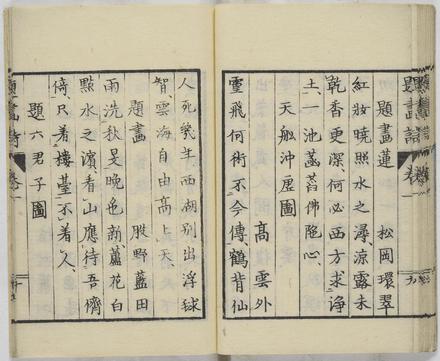 題畫詩 卷
題畫蓮 松岡環翠
紅妝曉照水之潯、涼露未
乾香更深、何必西方求淨
土、一池菡萏佛陀心、
天船沖圖
高雲外
靈飛何術不今傳、鶴背仙
人死幾年、西湖別出浮毬
智、雲海自由高上天、
題畫 股野藍田
雨洗秋旻晚色新、蘆花白
點水之濱、看山應待吾儕
倚、尺著樓臺不著人、
題六君子圖
題畫詩 卷